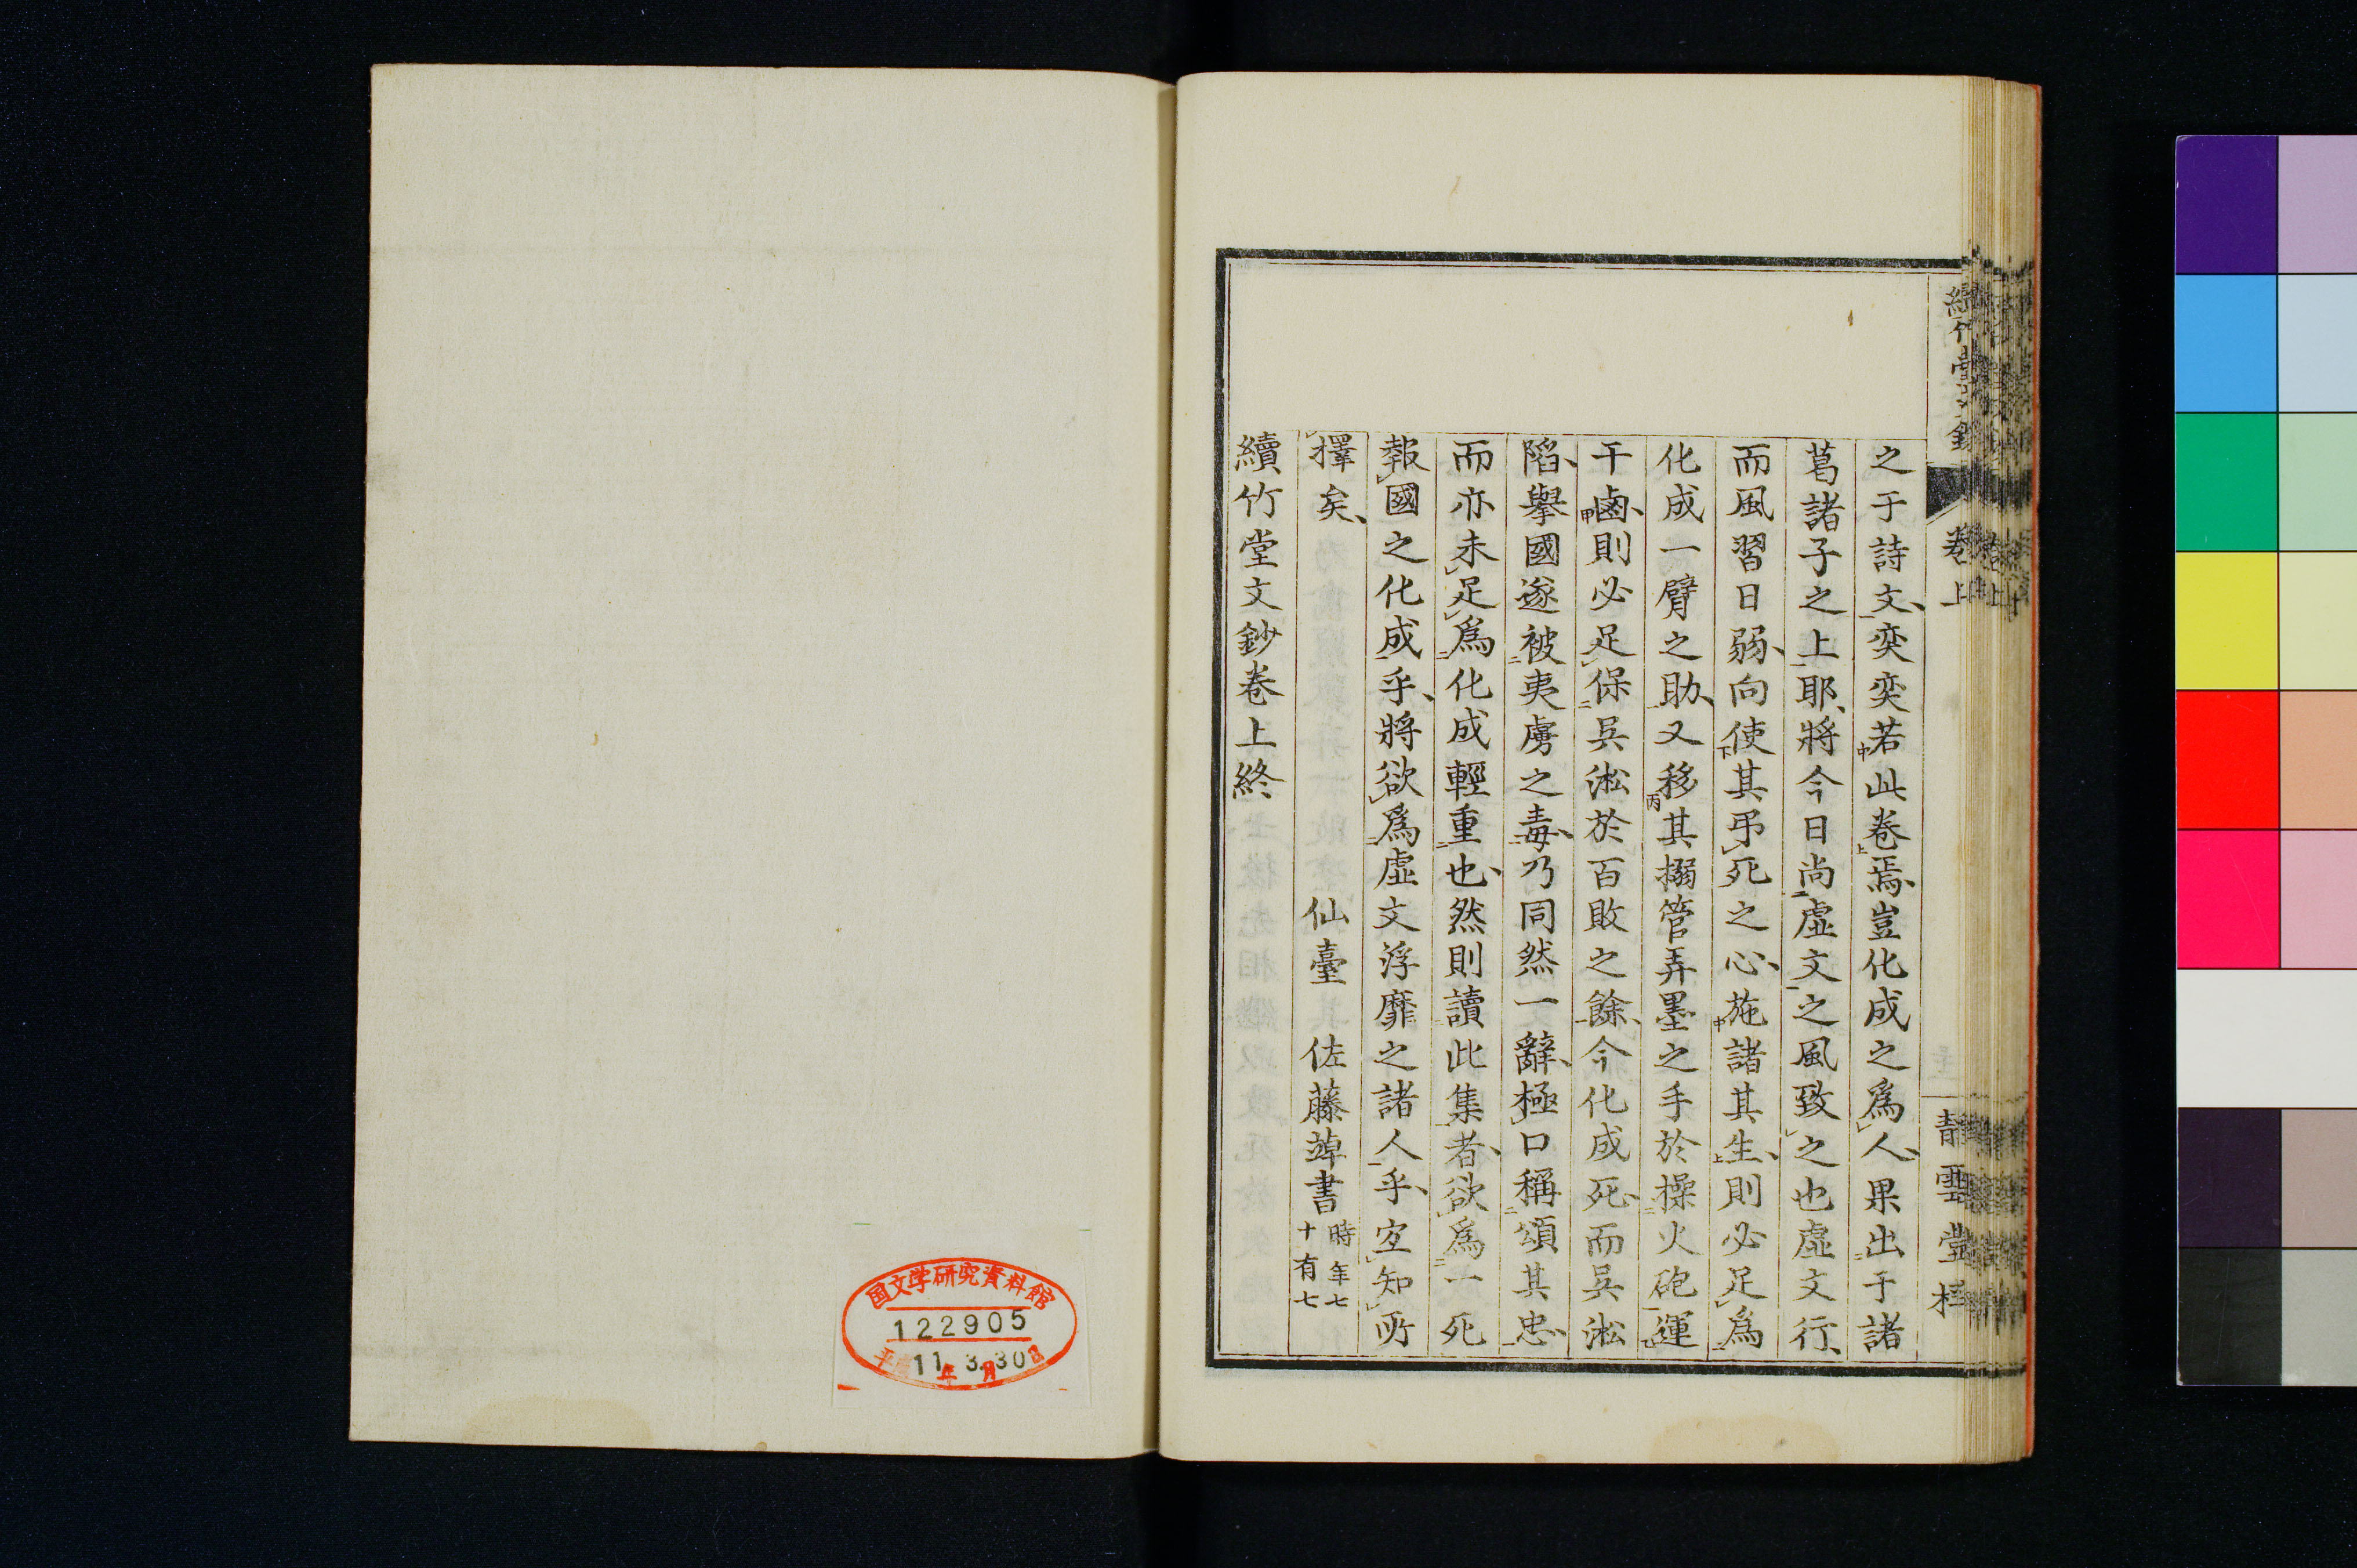 之于詩文、奕奕若此卷焉、豈化成之爲人、果出于諸
葛諸子之上耶、將今日尚虛文之風致之也虛文行、
而風習日弱、向使其弔死之心、施諸其生、則必足爲
化成一臂之助、又移其搦管弄墨之手於操火砲運
干鹵、則必足保吳淞於百敗之餘、今化成死、而吳淞
陷、擧國遂被夷虜之毒、乃同然一辭、極口稱頌其忠、
而亦未足爲化成輕重也、然則讀此集者、欲爲一死
報國之化成乎、將欲爲虛文浮靡之諸人乎、宜知所
擇矣、 仙臺 佐藤 書 時年七十有七
續竹堂文鈔卷上終
卷上
靑雲堂
国文学研究資料館
122905
平成11年3月30日